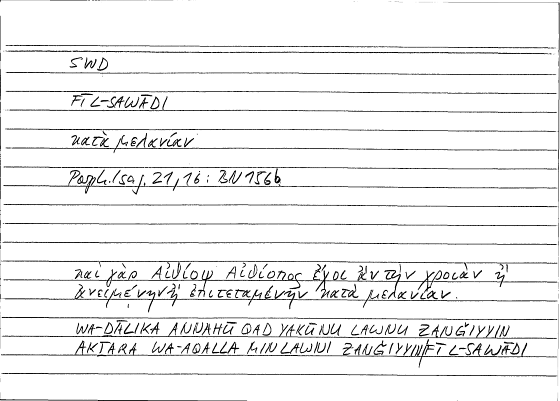 SWD
FĪ L-SAWĀDI
κατὰ μελανίαν
Porph. Isag. 21, 16 : BN 156b
καὶ γὰρ Αἰθίοψ Αἰθίοπος ἔχοι ἂν τὴν χροιὰν ἢ
ἀνειμένην ἢ ἐπιτεταμένην κατὰ μελανίαν.
WA-ḎĀLIKA ANNAHŪ QAD YAKŪNU LAWNU ZANǦIYYIN
AKṮARA WA-AQALLA MIN LAWNI ZANǦIYYIN/FĪ L-SAWĀDI